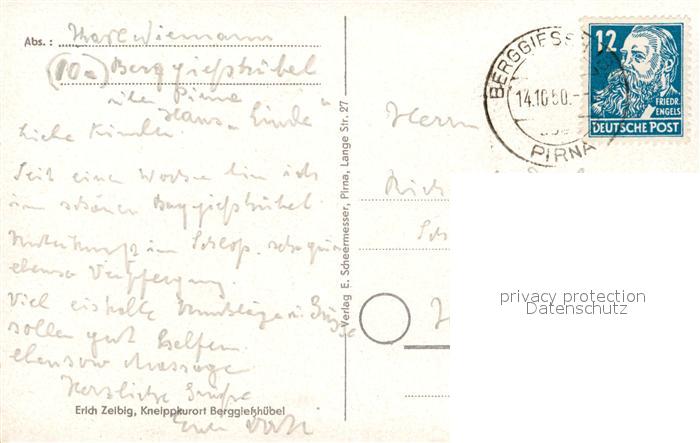 Abs.: Karl Wiemann
(10a) Berggießhübel
über Pirna
Haus "Linde"
Liebe Kinder.
Seit einer Woche bin ich
im schönen Berggießhübel.
Unterkunft im Schloß. sehr gut
ebenso Verpflegung.
Viel eiskalte
sollen gut helfen.
ebenso Massage
Herzliche Grüße
Euer Vati
Erich Zeibig, Kneippkurort Berggießhübel
Verlag E. Scheermesser, Pirna, Lange Str. 27
Herrn
BERGGIESS
14.10.50.-
PIRNA
12
FRIEDR. ENGELS
DEUTSCHE POST
privacy protection
Datenschutz